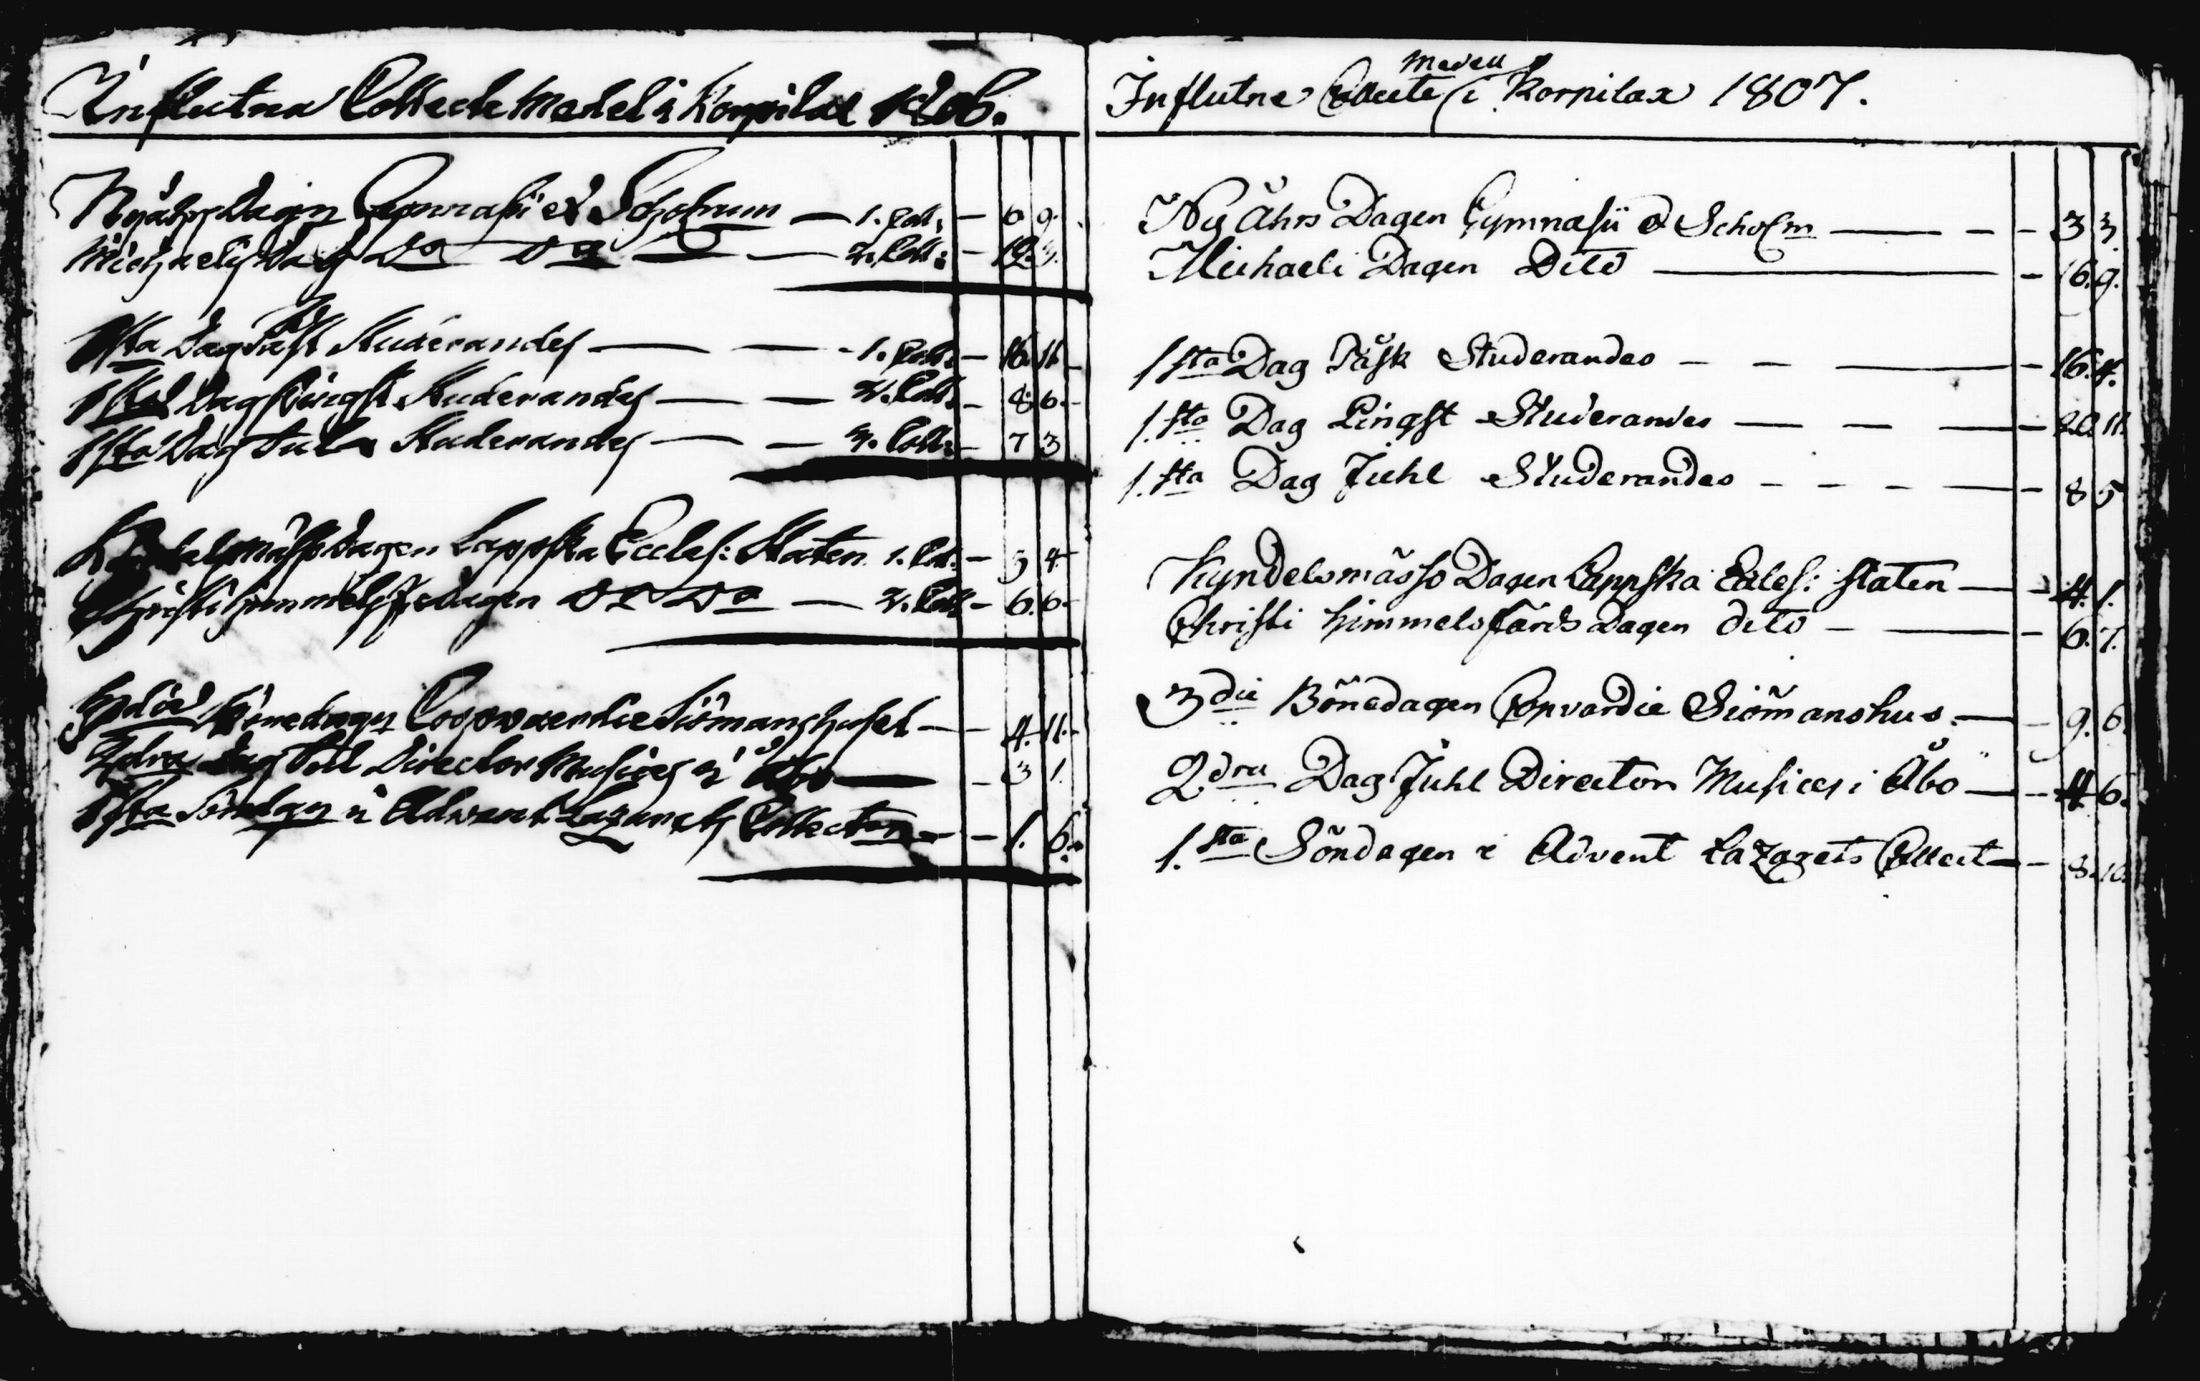 Influtna Collecte Medel i Korpilax 1806.
Nyåhrs Dagen Gymnasii et Scholarum — 1. Coll: — 6 9.
Michaelis Dag Do Do — 2. Coll: — 12. 3.
1sta Dag Påsk Studerandes — — 1. Coll. — 16. 11
1sta Dag Pingst Studerandes — — 2. Coll. — 8 6.
1sta Dag Jul Studerandes — — 3. Coll: — 7 3
Kyndelsmässodagen Lappska Eccles: Staten 1. Coll. — 5 4
Christi Himmelsf: dagen Do Do — 2. Coll — 6. 6.
3die Bönedagen Coopvaerdie Siömanshuset — 4. 11.
2dra Dag Jul Director Musices i Åbo — 3 1.
1sta Söndagen i Advent Lazarets Collecten — 1. 6.
Influtne Collecte Medell i Korpilax 1807.
Ny Åhrs Dagen Gymnasii et Scholm — — 3 3.
Michaeli Dagen Dito — 16. 9.
1sta Dag Påsk Studerandes — — — 16. 4.
1.sta Dag Pingst Studerandes — — — 20. 11.
1.sta Dag Juhl Studerandes — — — 8 5
Kyndelsmässo Dagen Lappska Eccles: staten — 4. 1.
Christi Himmelsfärds Dagen dito — — 6. 7.
3die Bönedagen Copvardie Siömanshus. — 9. 6
2dra Dag Juhl Director Musices i Åbo — 4 6.
1.sta Söndagen i Advent Lazarets Collect — 8. 10.